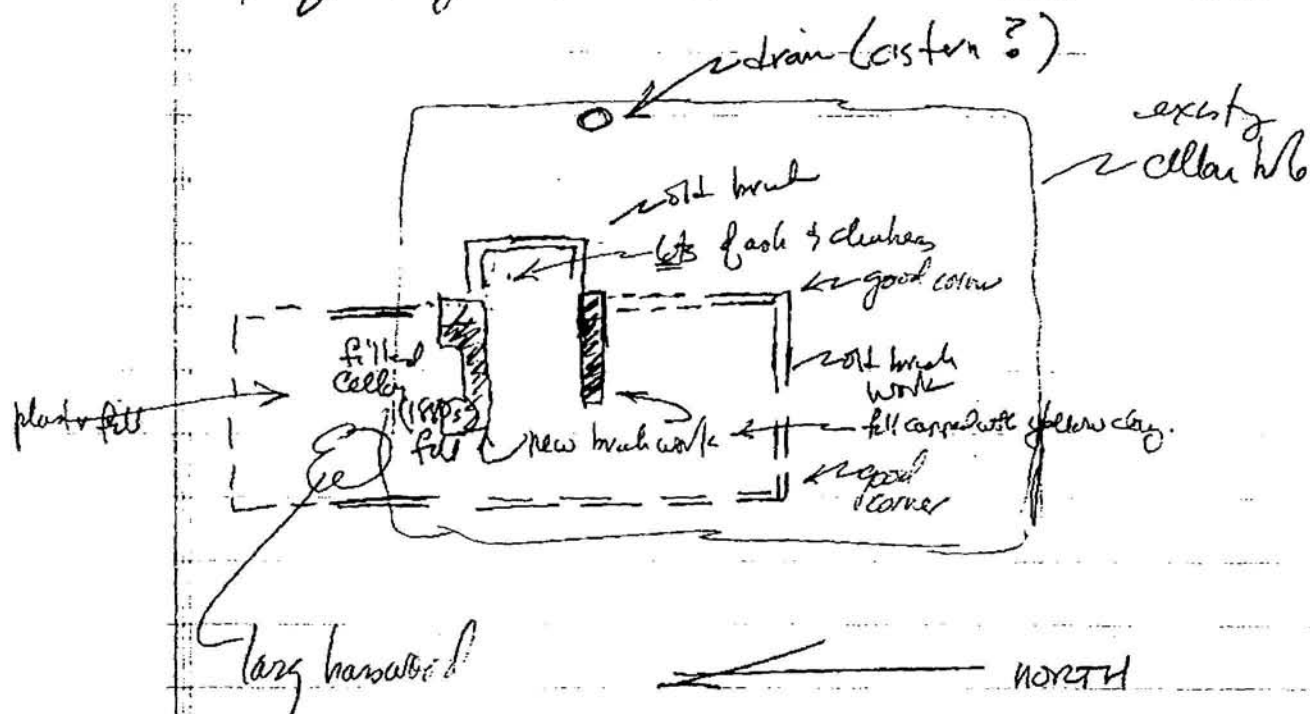 drain (cistern ?)
existg
cellar hole
old brick
lots of ash & clinkers
good corner
filled
cellar
(1890s)
fill
old brick
work
plaster fill
new brick work
fill capped with yellow clay.
good
corner
larg
NORTH